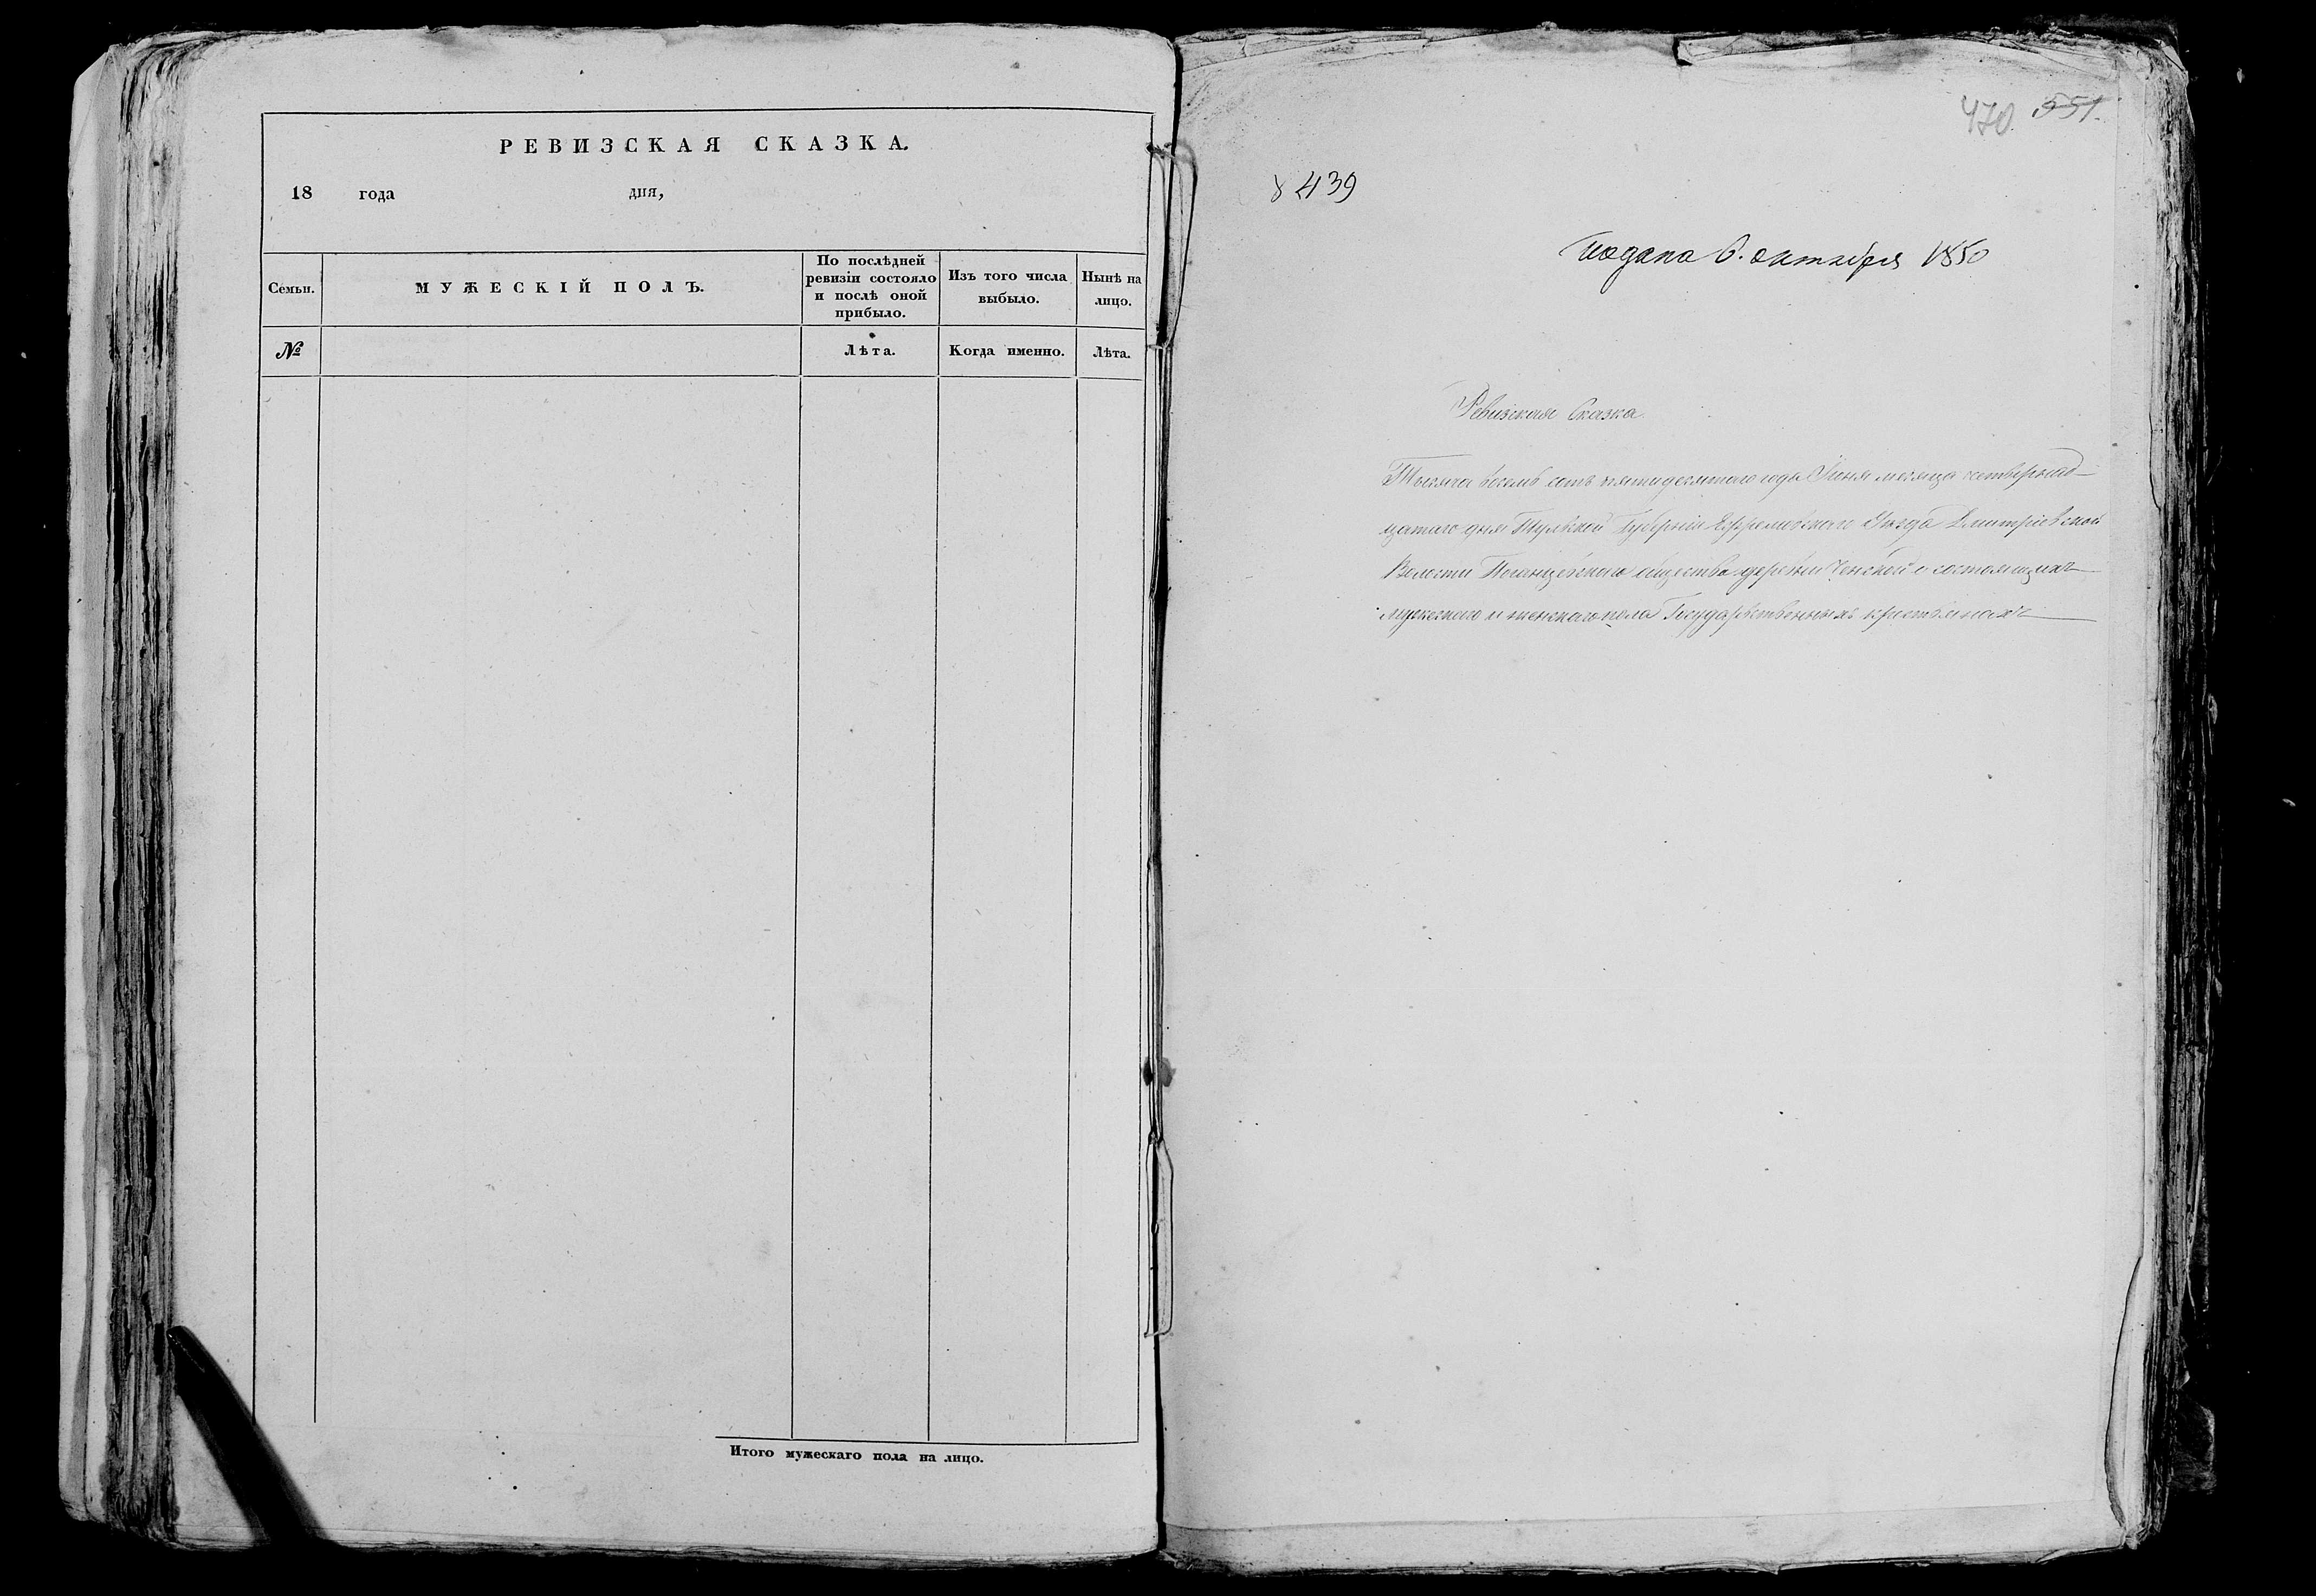 РЕВИЗСКАЯ СКАЗКА.
18 года дня,
Семьи.
МУЖЕСКІЙ ПОЛЪ.
По послѣдней
ревизіи состояло
и послѣ оной
прибыло.
Изъ того числа
выбыло.
Нынѣ на
лицо.
№
Лѣта.
Когда именно.
Лѣта.
Итого мужескаго пола на лицо.
470 551.
439
Подана 6. октября 1850
Ревизская Сказка
Тысяча восемь сотъ пятидесятаго года Іюня месяца четвернад-
цатаго дня Тульской Губерніи Ефремовскаго Уѣзда Дмитріевской
Волости общества деревни о состоящихъ
мужескаго и женскаго пола Государственныхъ крестьянахъ